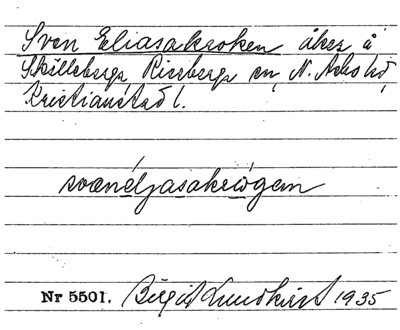 Sven Eliasakroken åker å
Skälleberga Riseberga sn, N. Åsbo hd,
Kristianstad l.
svenéljasakrógem
Nr 5501. Birgit Lundkvist 1935